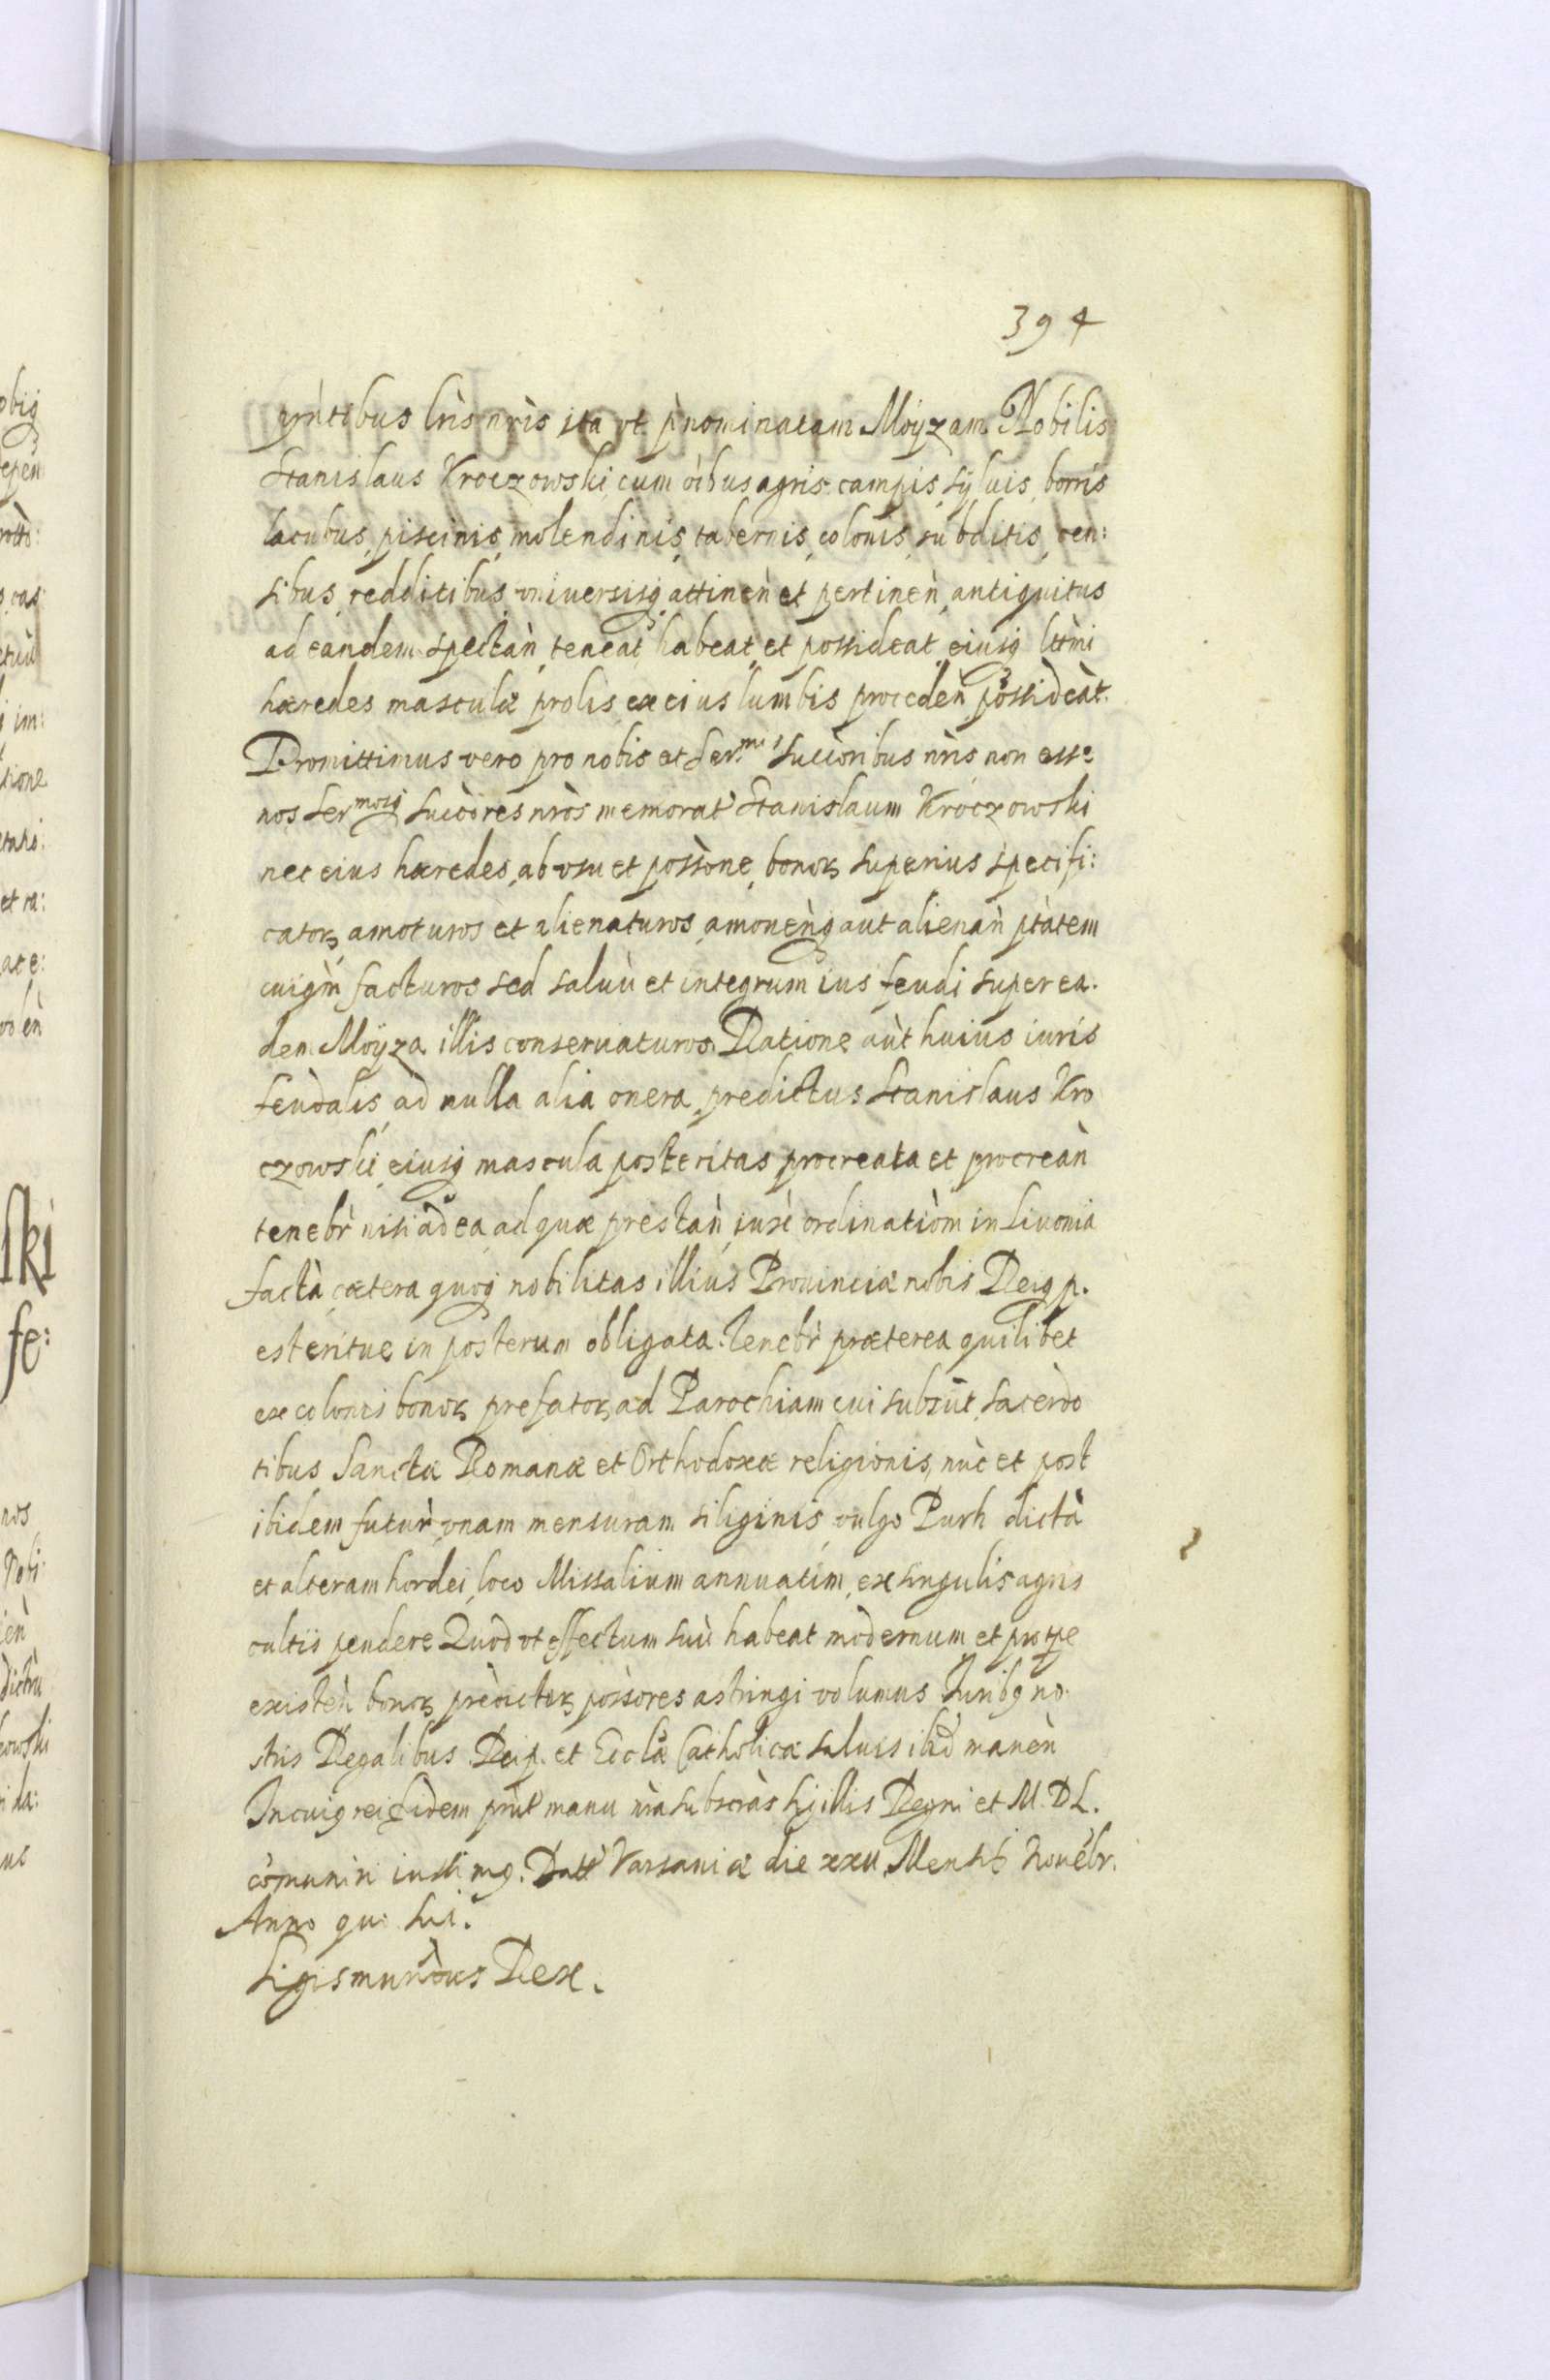 394
gntibus lris nris ita vt pnominatam Moyzam. Nobilis
Stanislaus Kroczowski cum oibus agris campis syluis, borris
lacubus, piscinis, molendinis, tabernis, colonis, subditis, cen:
sibus, redditibus vniuersisq attinen et pertinen, antiquitus
ad eandem spectan, teneat, habeat, et possideat, eiusq lttmi
hæredes masculæ prolis, ex eius lumbis proceden possideat.
Promittimus vero pro nobis et Ser.mis Succoribus nris non esse
nos Sermosq succores nros memorat Stanislaum Kroczowski
nec eius hæredes, ab vsu et possone, bonor, superius specifi:
cator, amoturos et alienaturos, amouenq aut alienan ptatem
cuiqm facturos sed saluu et integrum ius feudi super ea.
dem Moyza illis conseruaturos. Ratione aut huius iuris
feudalis, ad nulla alia onera, predictus Stanislaus Kro
czowski, eiusq mascula posteritas procreata et procrean
tenebr nisi ad ea, ad quæ prestan, iuxe ordinatiom in Liuonia
facta, cætera quoq nobilitas illius Prouinciæ nobis Reiq p.
est eritue in posterum obligata. Tenebr præterea quilibet
ex colonis bonor, prefator, ad Parochiam cui subsut, sacerdo
tibus Sanctæ Romanæ et Orthodoxæ religionis, nuc et post
ibidem futur, vnam mensuram siliginis, vulgo Purh dicta
et alteram hordei, loco Missalium annuatim, ex singulis agris
cultis pendere Quod vt effectum suu habeat modernum et pro tpe
existen bonor, predictor, possores astringi volumus Iuribq no.
stris Regalibus Reip. et Eccla Catholicæ saluis ibid manen
In cuiq rei fidem pnt manu nra subscras Sigillis Regni et M. D L.
comuniri iussimq. Datt Varsauiæ die xxv Mensis Nouebr.
Anno qu: Sui.
Sigismundus Rex.